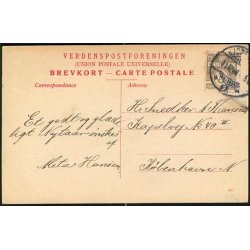 VERDENSPOSTFORENINGEN
(UNION POSTALE UNIVERSELLE)
BREVKORT – CARTE POSTALE
Correspondance
Adresse
Hr. Snedker
Kapelvej No 40
København N
Et godt og glæde-
ligt Nytaar ønskes
af
Meta Hansen